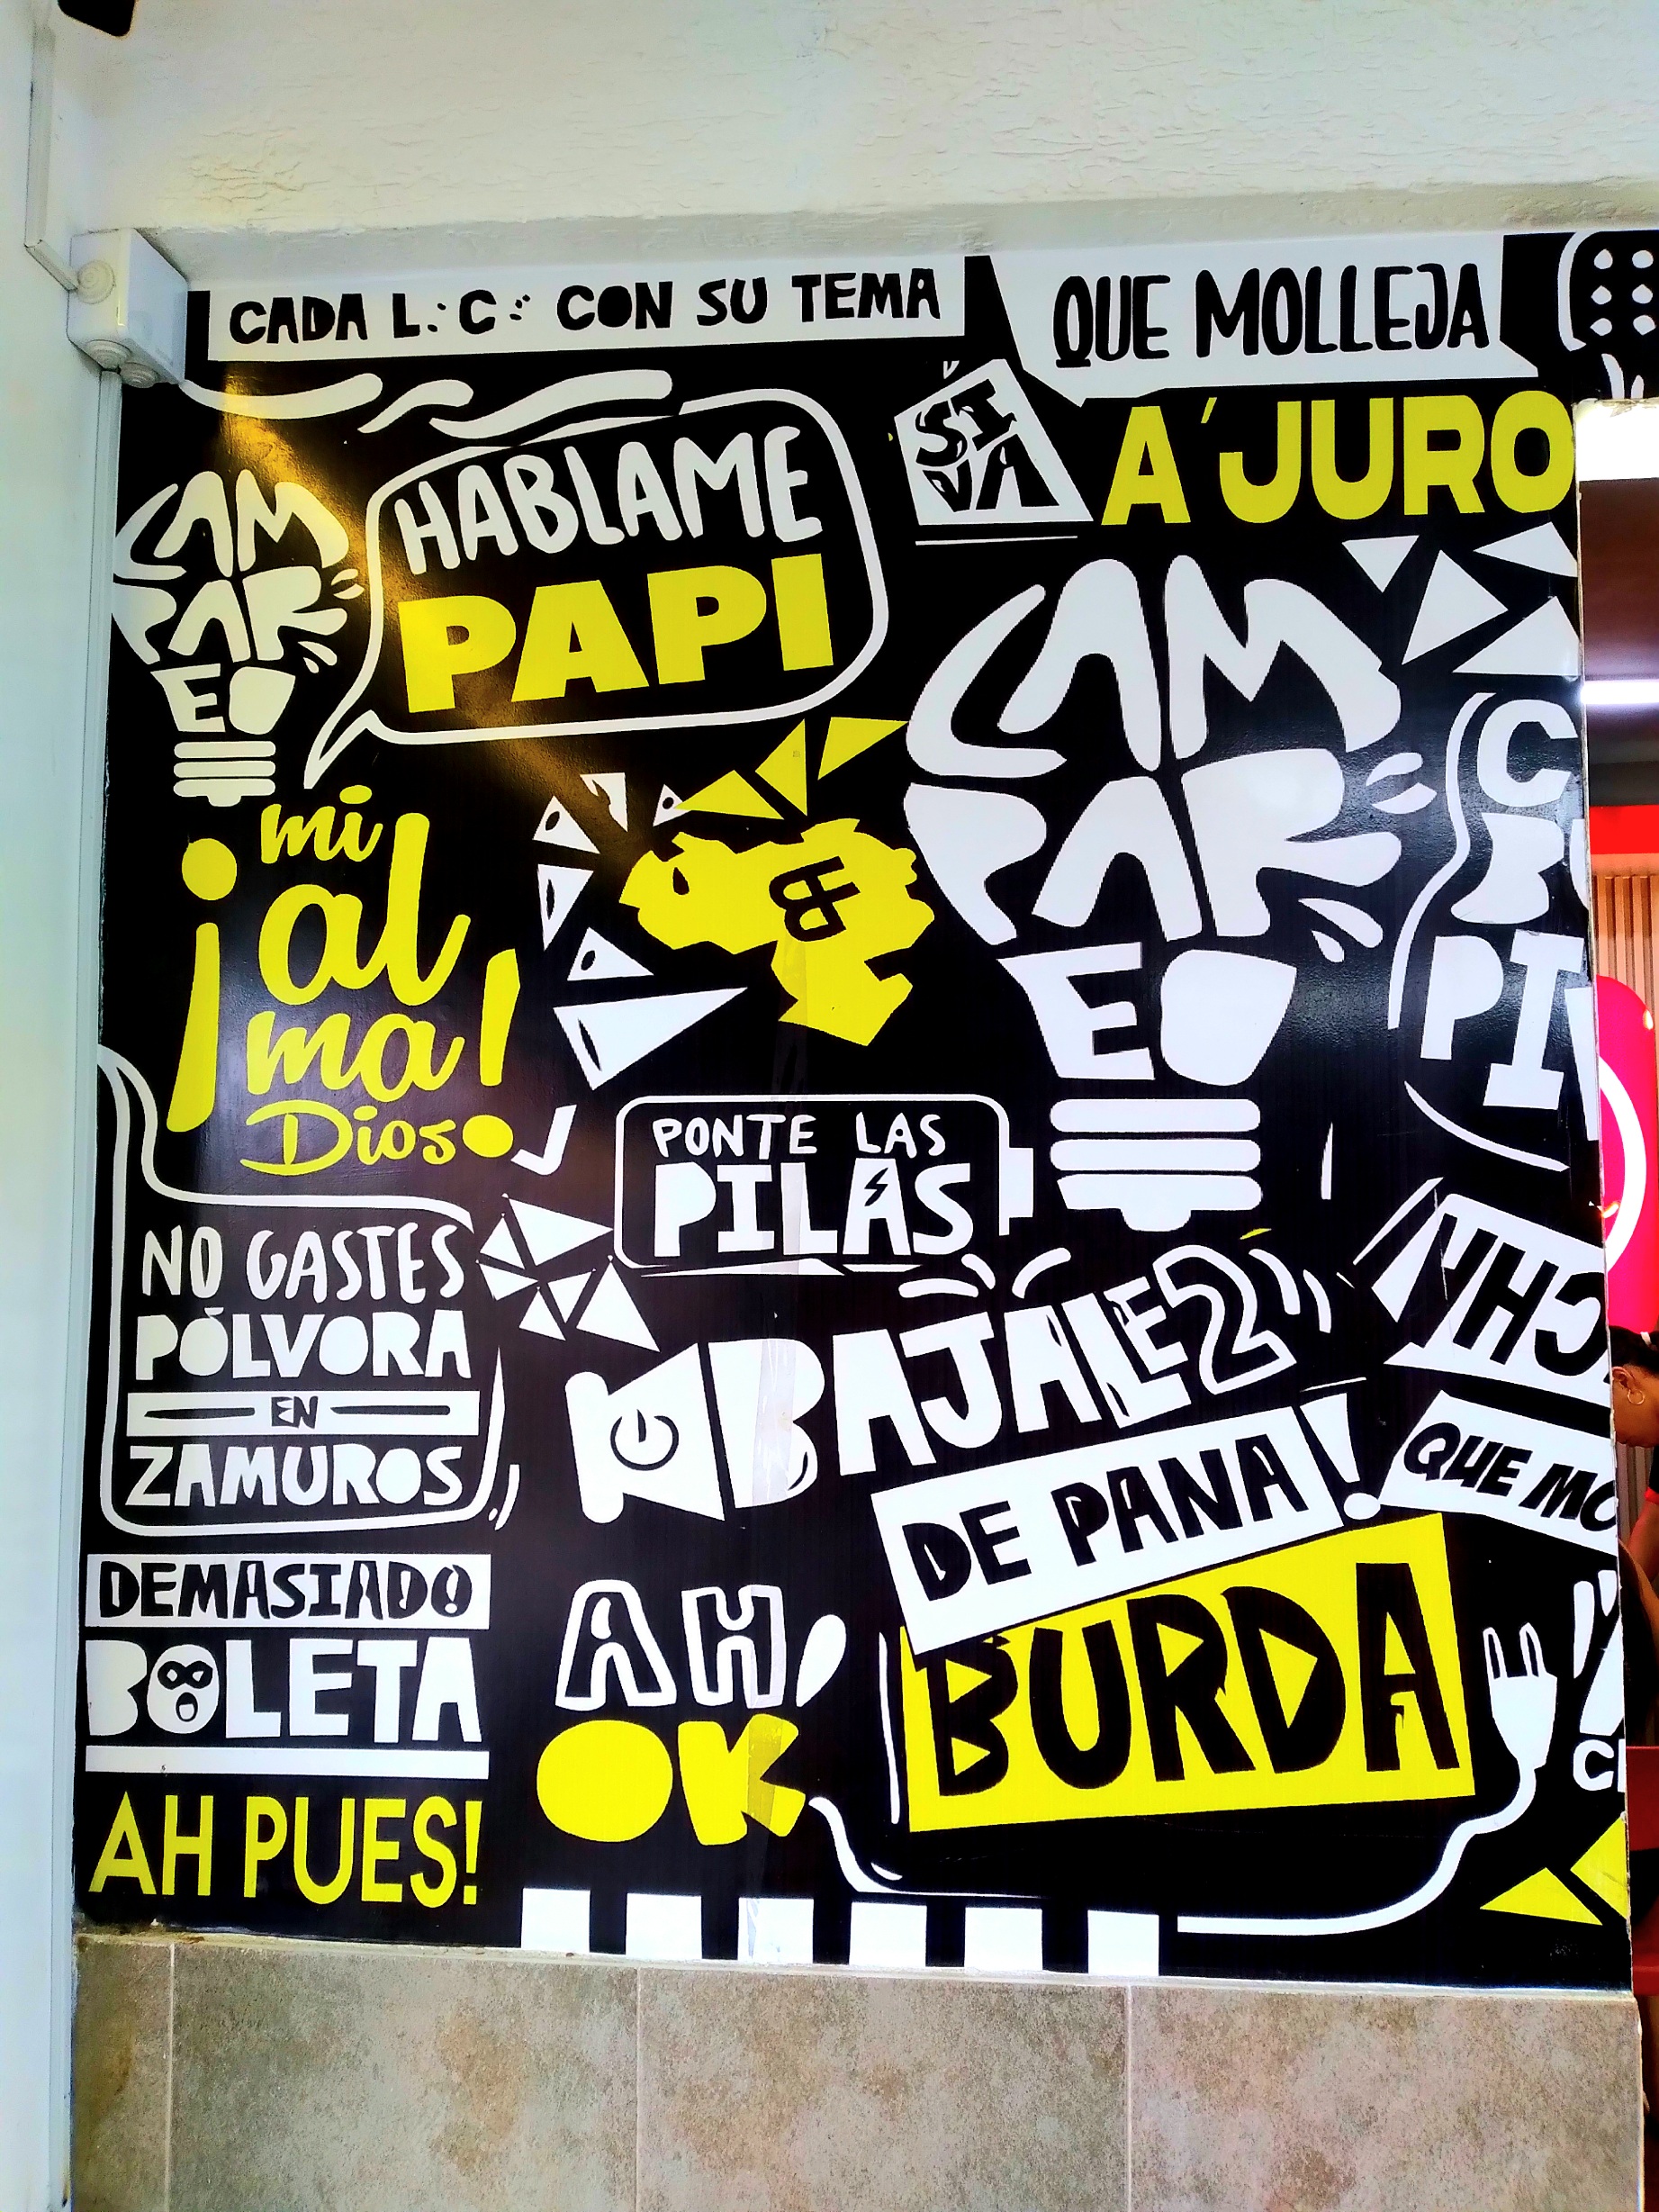 CADA L:C: CON SU TEMA
QUE MOLLEJA
SI
VA
A'JURO
HABLAME
PAPI
LAM
PAR
EO
LAM
PAR
EO
C
PI
¡mi
al
ma!
Dios
BF
PONTE LAS
PILAS
NO GASTES
PÓLVORA
EN
ZAMUROS
BAJALE2
DE PANA!
QUE MO
BURDA
DEMASIADO
BOLETA
AH,
OK
AH PUES!